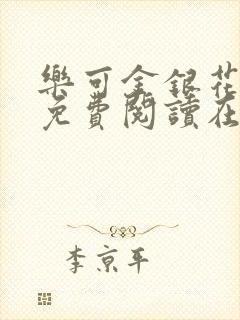 樂可金銀花
免費閱讀在
李京平